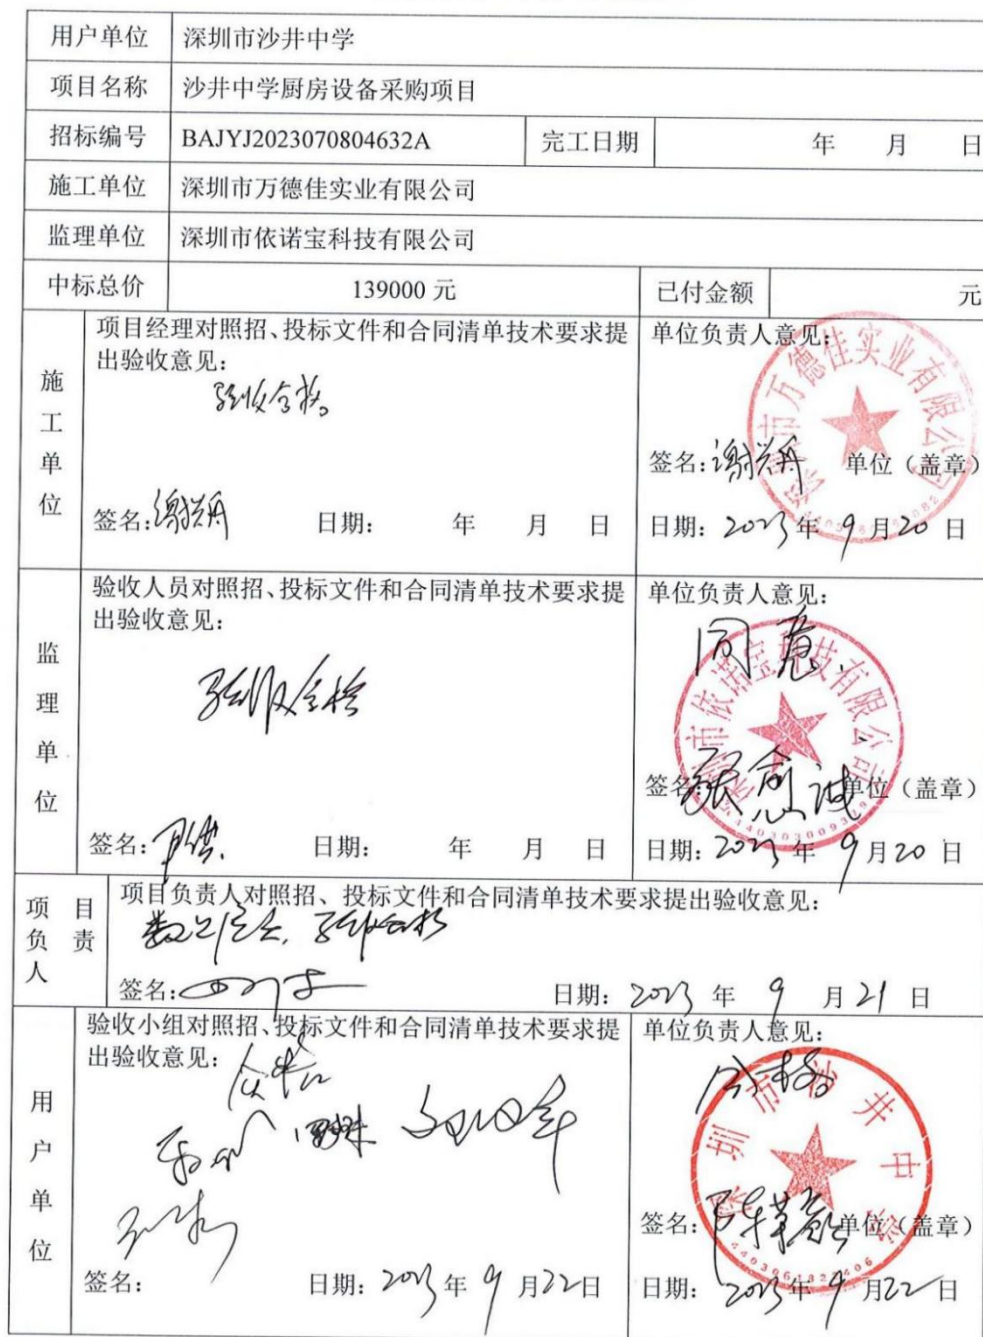 用户单位 深圳市沙井中学
项目名称 沙井中学厨房设备采购项目
招标编号 BAJYJ2023070804632A 完工日期 年 月 日
施工单位 深圳市万德佳实业有限公司
监理单位 深圳市依诺宝科技有限公司
中标总价 139000 元 已付金额 元
施工单位
项目经理对照招、投标文件和合同清单技术要求提
出验收意见:
验收合格。
签名: 谢兴舟 日期: 年 月 日
单位负责人意见:
深圳市万德佳实业有限公司
签名: 谢兴舟 单位（盖章）
日期: 2023 年 9 月 20 日
监理单位
验收人员对照招、投标文件和合同清单技术要求提
出验收意见:
验收合格
签名: 日期: 年 月 日
单位负责人意见:
同意
深圳市依诺宝科技有限公司
签名: 单位（盖章）
日期: 2023 年 9 月 20 日
项目负责人
项目负责人对照招、投标文件和合同清单技术要求提出验收意见:
验收合格
签名: 日期: 2023 年 9 月 21 日
用户单位
验收小组对照招、投标文件和合同清单技术要求提
出验收意见:
签名: 日期: 2023 年 9 月 22 日
单位负责人意见:
合格
深圳市沙井中学
签名: 单位（盖章）
日期: 2023 年 9 月 22 日